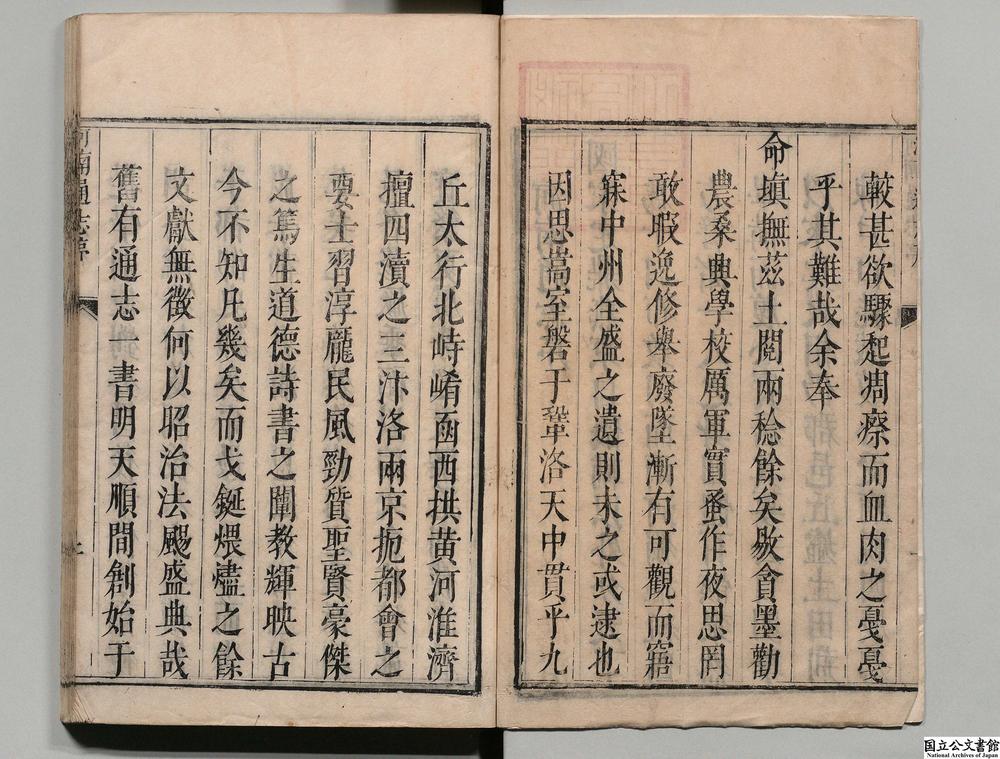 較甚欲驟起凋瘵而血肉之戞戞
乎其難哉余奉
命填撫茲土閱兩稔餘矣敭貪墨勸
農桑興學校厲軍實蚤作夜思罔
敢暇逸修舉廢墜漸有可觀而寤
寐中州全盛之遺則未之或逮也
因思嵩室磐于鞏洛天中貫乎九
丘太行北峙崤函西拱黄河淮濟
擅四瀆之三汴洛兩京扼都會之
要士習淳龎民風勁質聖賢豪傑
之篤生道德詩書之闡教輝映古
今不知凡幾矣而戈鋋煨燼之餘
文獻無徵何以昭治法颺盛典哉
舊有通志一書明天順間創始于
河南通志序
国立公文書館
National Archives of Japan